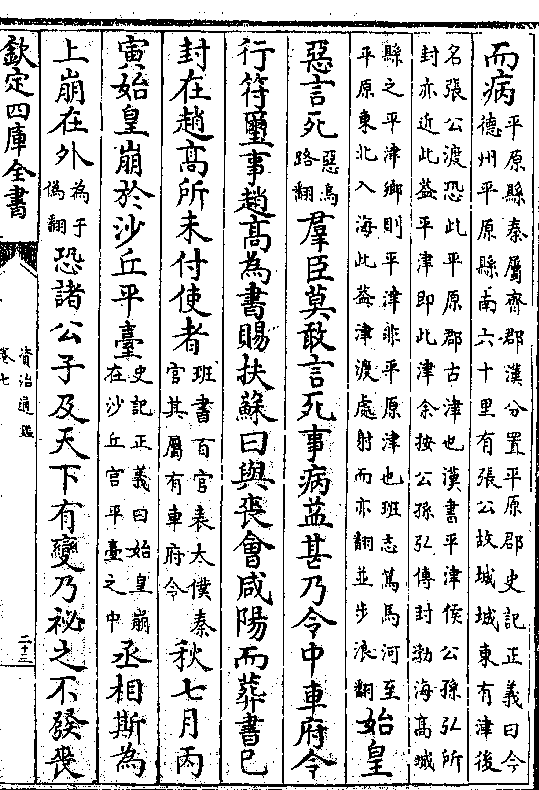 而病平原縣秦屬齊郡漢分置平原郡史記正義曰今
德州平原縣南六十里有張公故城城東有津後
名張公渡恐此平原郡古津也漢書平津侯公孫弘所
封亦近此葢平津即此津余按公孫弘傳封勃海高城
縣之平津鄉則平津非平原津也班志篤馬河至
平原東北入海此葢津渡處射而亦翻並步浪翻始皇
惡言死惡烏路翻羣臣莫敢言死事病益甚乃令中車府令
行符璽事趙高為書賜扶蘇曰與喪會咸陽而葬書已
封在趙高所未付使者班書百官表太僕秦官其屬有車府令秋七月丙
寅始皇崩於沙丘平臺史記正義曰始皇崩在沙丘宫平臺之中丞相斯為
上崩在外為于偽翻恐諸公子及天下有變乃祕之不發喪
欽定四庫全書
資治通鑑
卷七
二十三